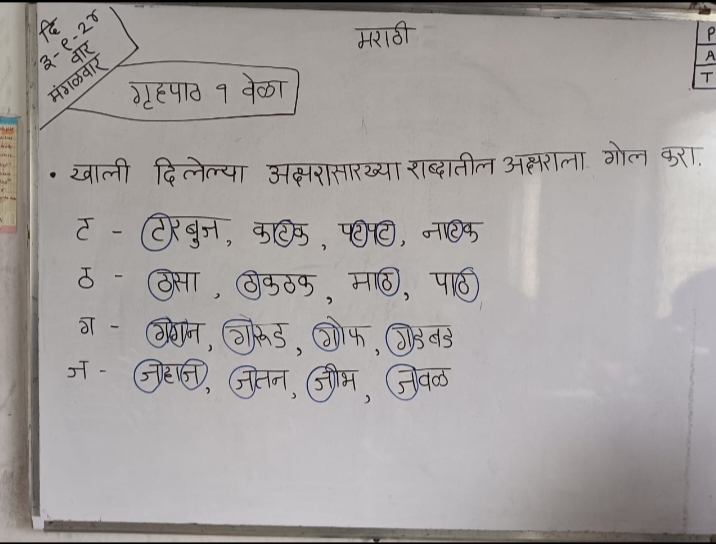 मराठी
दि
३-९-२४
वार
मंगळवार
P
A
T
गृहपाठ १ वेळा
• खाली दिलेल्या अक्षरासारख्या शब्दातील अक्षराला गोल करा.
ट - टरबुज, काटक, पटपट, नाटक
ठ - ठसा, ठकठक, माठ, पाठ
ग - गगन, गरूड, गोफ, गडबड
ज - जहाज, जतन, जीभ, जवळ